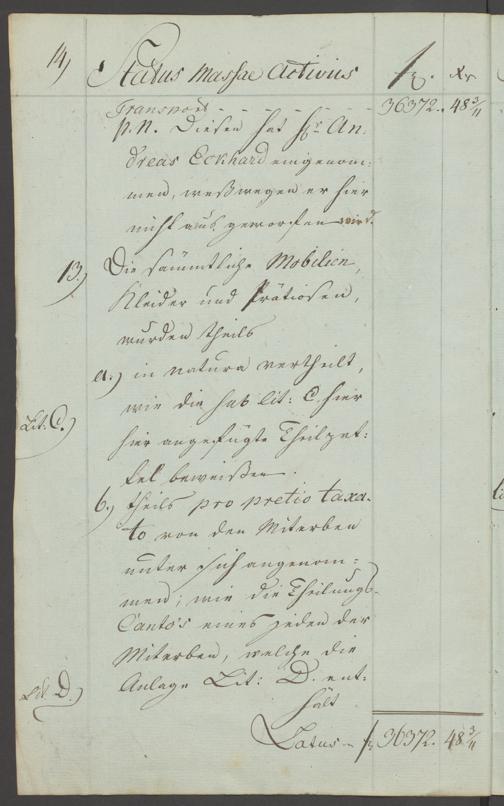 14) Status Massae Activus f. xr
Transport - - - - - - 36372. 48 3/11
p. N. Diesen hat Hr. An-
dreas Eckhard eingenom-
men, weßwegen er hier
nicht aus geworfen wird.
13.) Die sämmtliche Mobilien,
Kleider und Prätiosen,
wurden theils
a.) in natura vertheilt,
wie die sub lit: C. hier
Lit. C.)
hier angefügte Theilzet-
tel beweißen.
b.) theils pro pretio taxa-
to von den Miterben
unter sich angenom-
men; wie die Theilungs-
Conto's eines jeden der
Miterben, welche die
Lit D.) Anlage Lit: D. ent-
hält
Latus - f 36372. 48 3/11